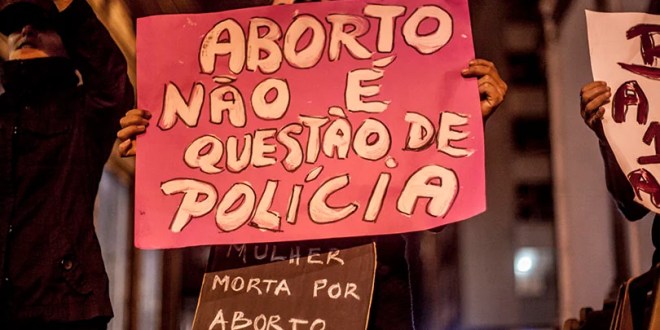 ABORTO
NÃO É
QUESTÃO DE
POLÍCIA
MULHER
MORTA POR
ABORTO